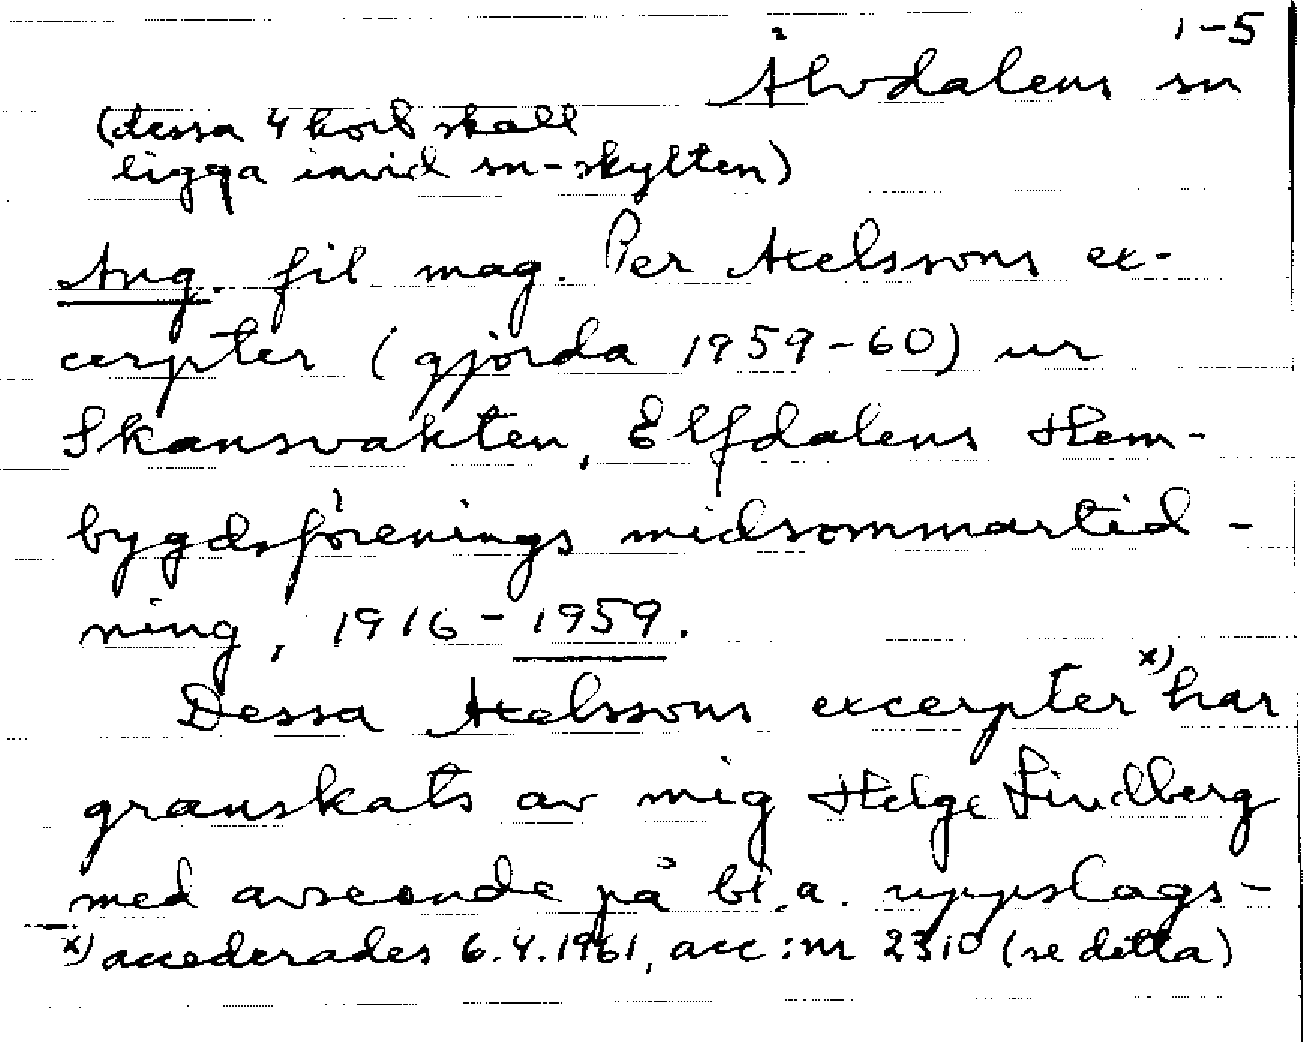 1-5
Älvdalens sn
(dessa 4 kort skall
ligga invid sn-skylten)
Ang. fil mag. Per Axelssons ex-
cerpter (gjorda 1959-60) ur
Skansvakten, Elfdalens Hem-
bygdsförenings midsommartid-
ning, 1916-1959.
Dessa Axelssons excerpter x) har
granskats av mig Helge Lindberg
med avseende på bl.a. uppslags-
x) accederades 6.4.1961, acc:nr 2310 (se detta)